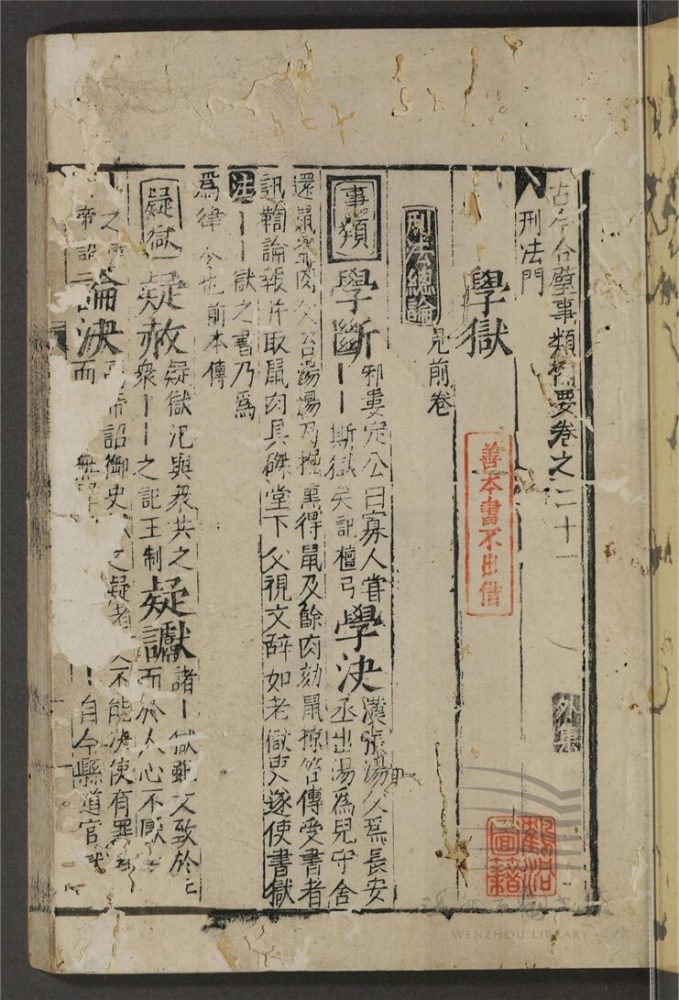 古今合璧事類備要卷之二十一
外集
刑法門
學獄
善本書不出借
刑法總論
見前卷
事類
學斷
邾婁定公曰寡人嘗
學丨斯獄矣記檀弓
學決
漢張湯父爲長安
丞出湯爲兒守舍
還鼠盜肉父笞湯湯乃掘熏得鼠及餘肉劾鼠掠笞傳爰書
訊鞫論報并取鼠肉具磔堂下父視文辭如老獄吏遂使書獄
注
丨丨獄之書乃爲
爲律令也前本傳
疑獄
疑赦
疑獄汜與衆共之
衆丨丨之記王制
疑讞
諸丨獄雖文致於
而於人心不厭
論決
詔御史
之疑者
不能決使有罪
帝詔
而
丨自今縣道官獄
籍
WENZHOU LIBRARY